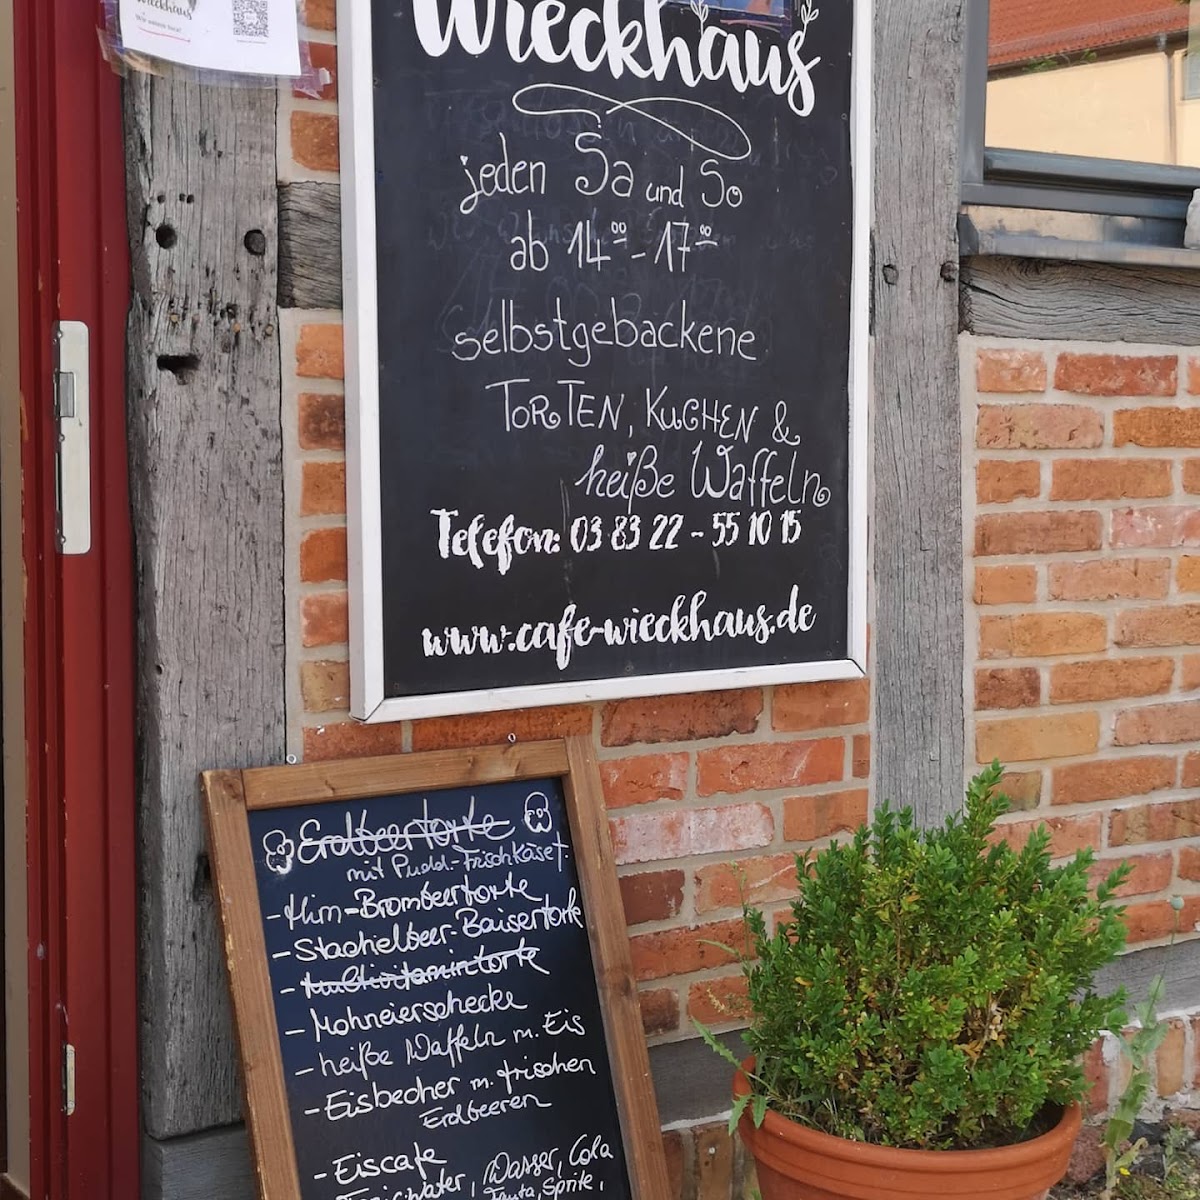 Wieckhaus
Wieckhaus
jeden Sa und So
ab 14⁰⁰ - 17⁰⁰
selbstgebackene
TORTEN, KUCHEN &
heiße Waffeln
Telefon: 03 83 22 - 55 10 15
www.cafe-wieckhaus.de
Erdbeertorte
mit Pudd.-Frischkäset.
- Him-Brombeertorte
- Stachelbeer-Baisertorte
- Multivitamintorte
- Mohneierschecke
- heiße Waffeln m. Eis
- Eisbecher m. frischen
Erdbeeren
- Eiscafe
Wasser, Cola
Fanta, Sprite,